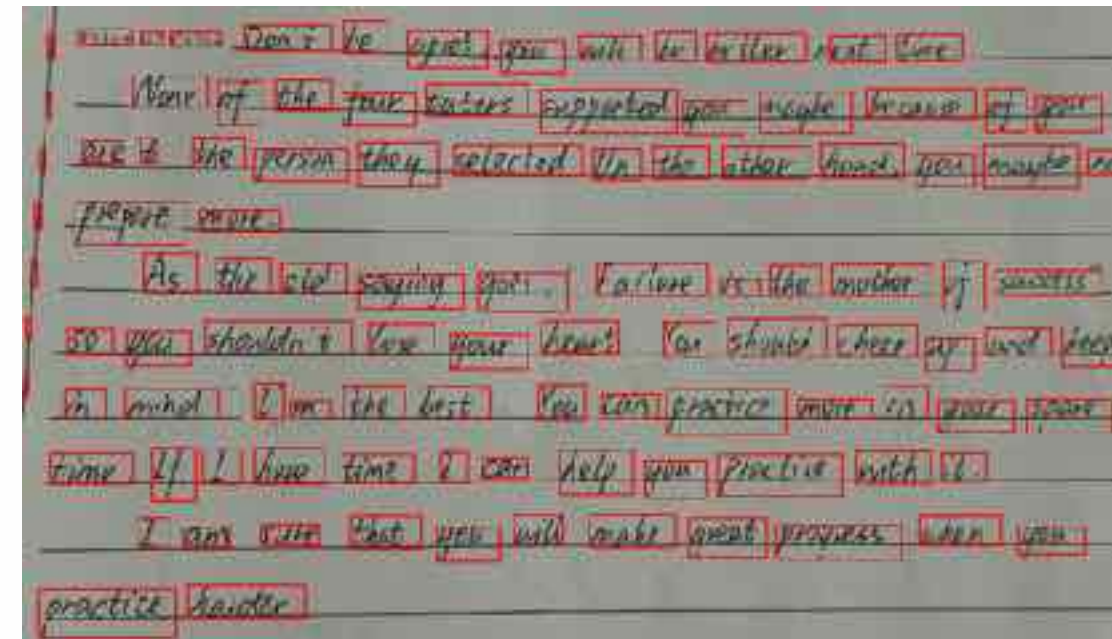 Don't be upset you will be better next time
None of the four tutors supported you maybe because of your
the person they selected On the other hand, you maybe
prepare more.
As the old saying goes. Failure is the mother of success"
so you shouldn't lose your heart You should cheer up and keep
in mind I'm the best You can practice more in your spare
time If I have time I can help you practice with it.
I am sure that you will make great progress when you
practice harder